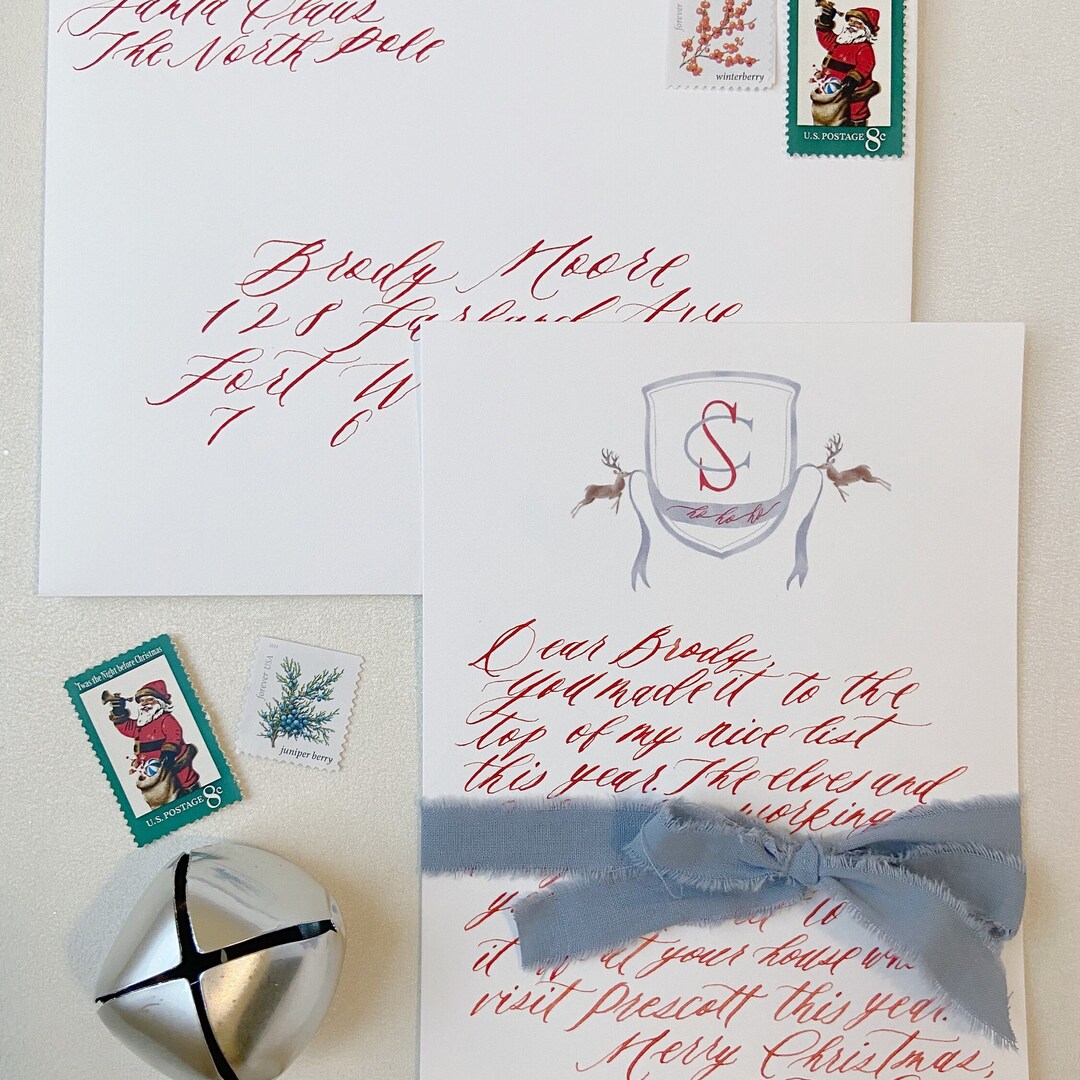 Santa Claus
The North Pole
forever
winterberry
U.S. POSTAGE 8c
Brody Moore
128 Farland Ave
Fort W
7 6
SC
ho ho ho
Dear Brody,
You made it to the
top of my nice list
this year. The elves and
working
to
it at your house
visit Prescott this year.
Merry Christmas,
'Twas the Night before Christmas
U.S. POSTAGE 8c
forever USA
juniper berry